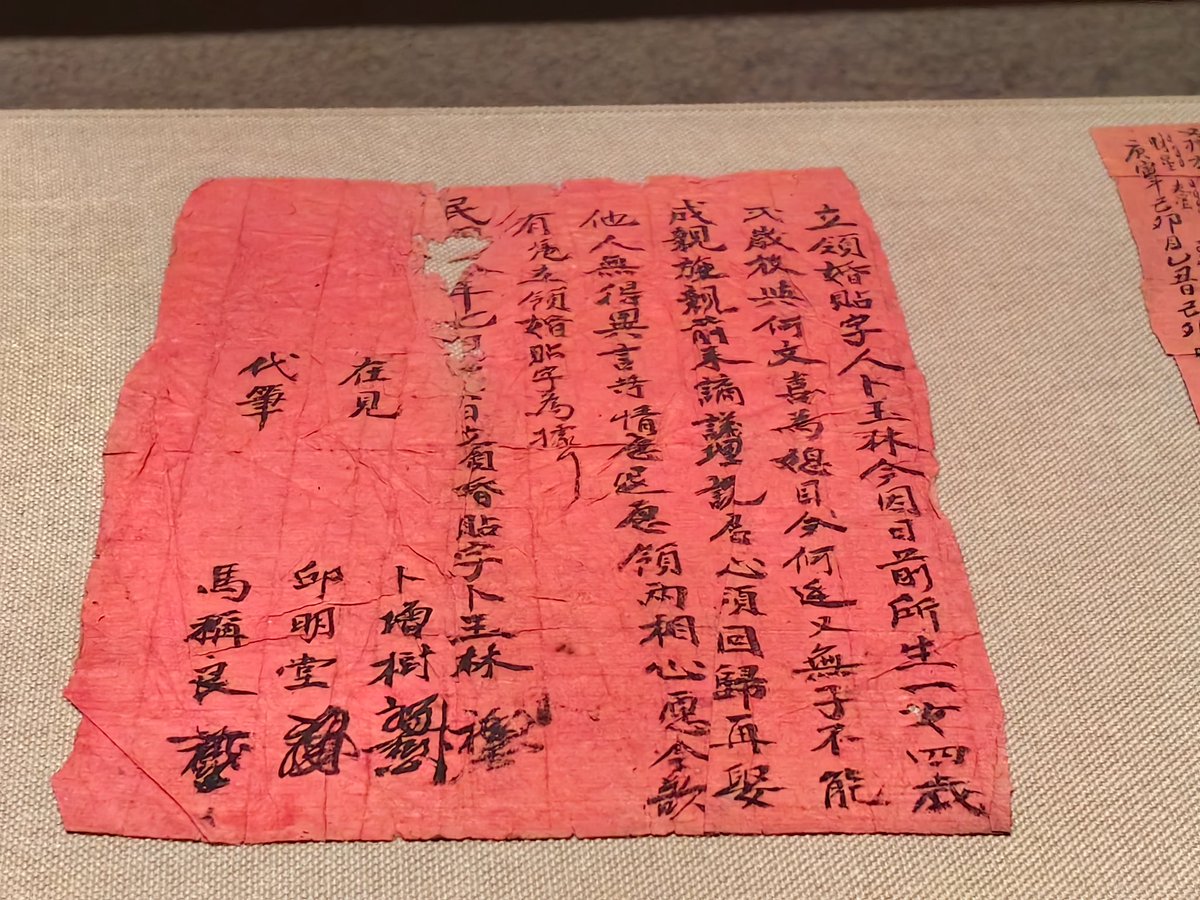 立領婚貼字人卜玉林今因日前所生一女四歲
六歲放與何文喜為媳目今何姓又無子不能
成親旋親前來謫議理說居心須回歸再娶
他人無得異言時情愿退愿領兩相心愿今歆
有凭立領婚貼字為據
民 年七 日立領婚貼字卜玉林
在見 卜增樹
邱明堂
代筆 馬稱良
庚寅年己卯月乙丑日己卯